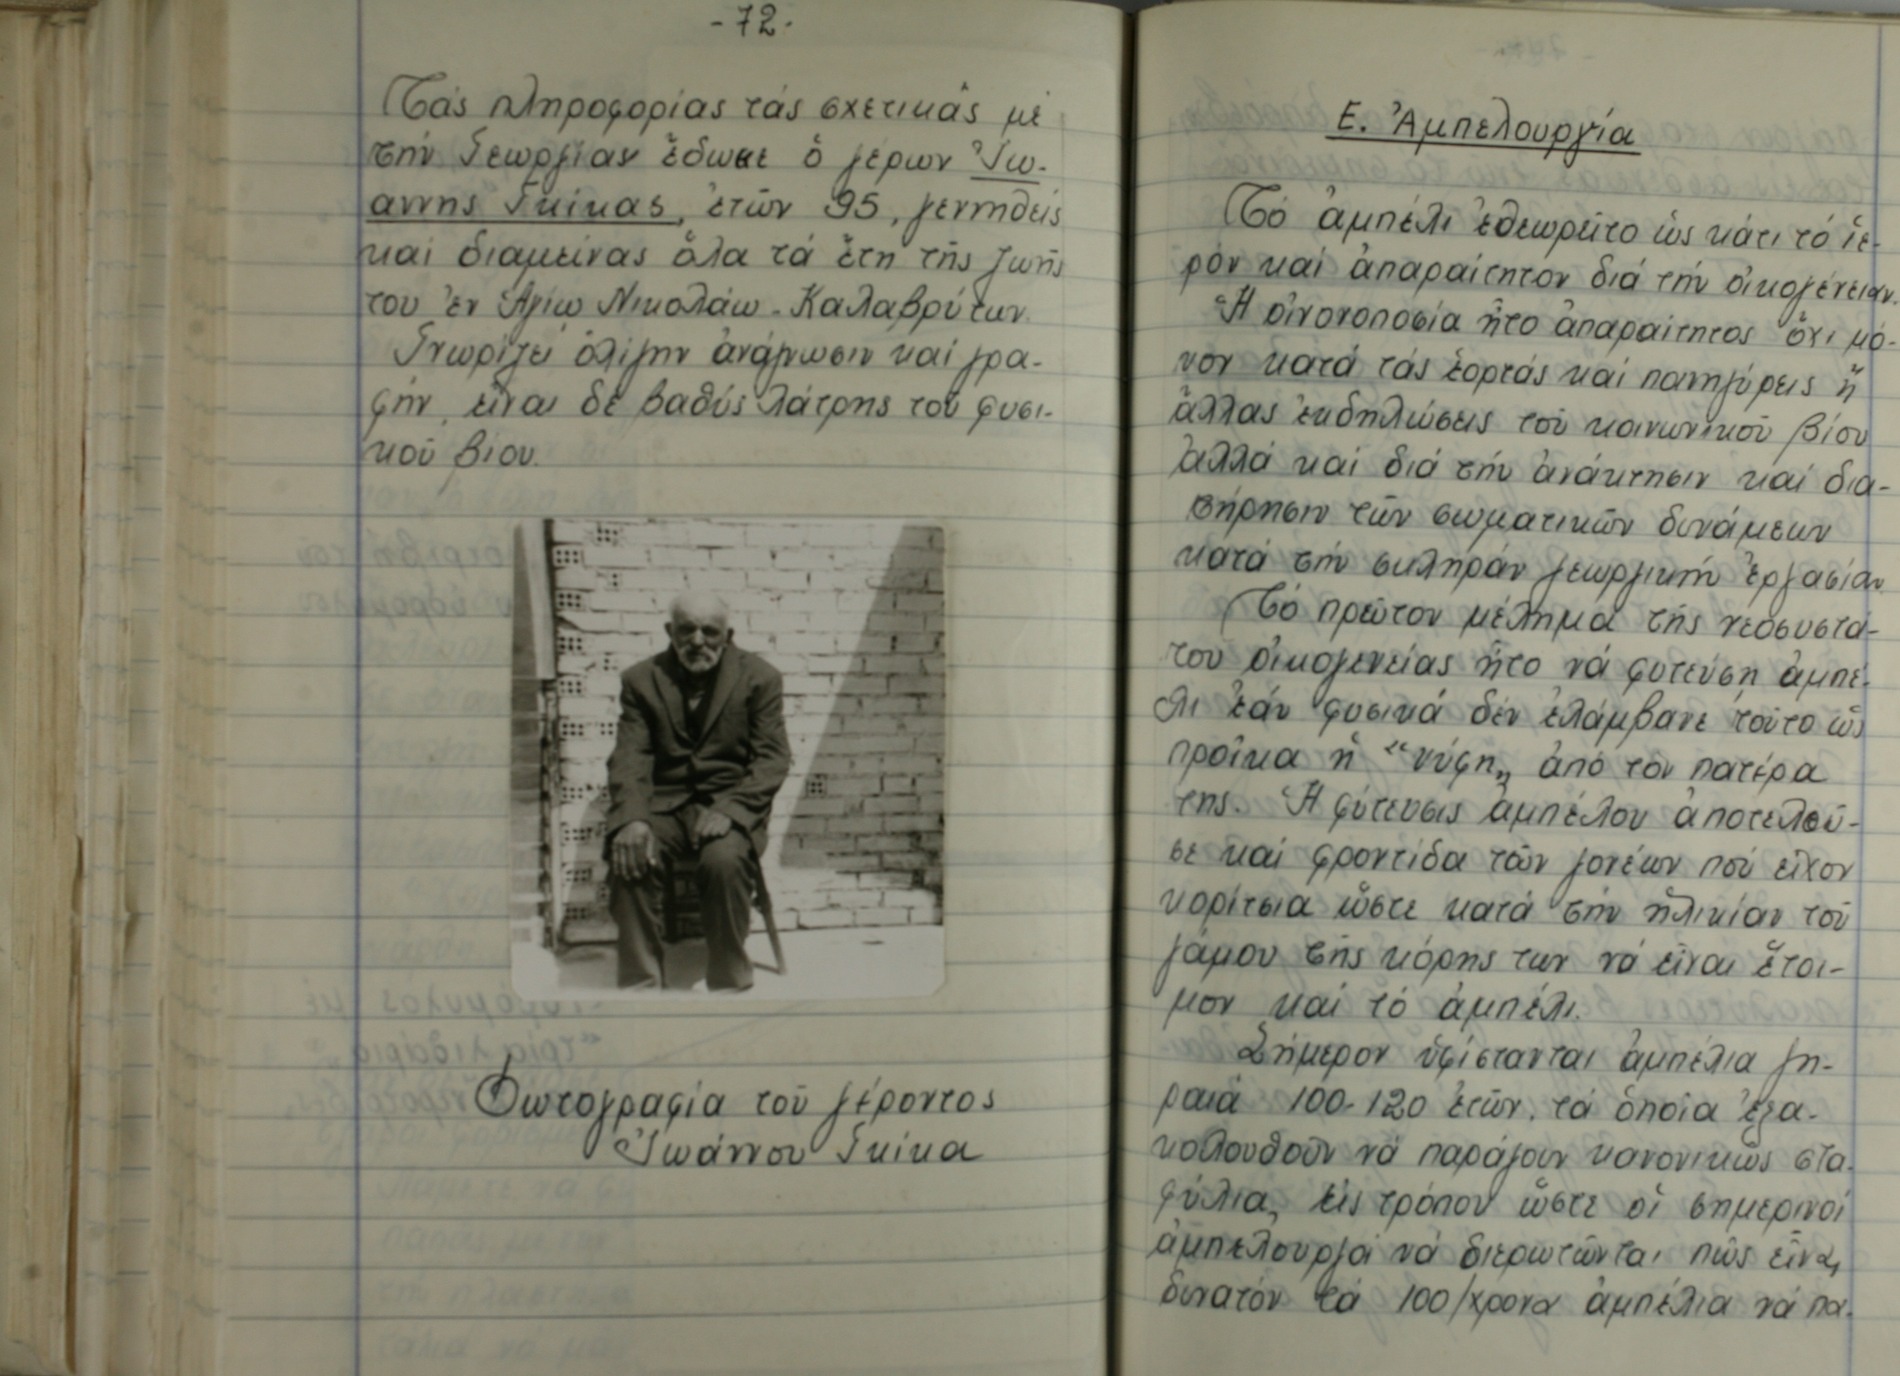 -72-
Τάς πληροφορίας τάς σχετικάς μέ
τήν Γεωργίαν ἔδωσε ὁ γέρων Ἰω-
άννης Γκίκας, ἐτῶν 95, γεννηθείς
καί διαμείνας ὅλα τά ἔτη τῆς ζωῆς
του ἐν Ἁγίῳ Νικολάῳ - Καλαβρύτων.
Γνωρίζει ὀλίγην ἀνάγνωσιν καί γρα-
φήν, εἶναι δέ βαθύς λάτρης τοῦ φυσι-
κοῦ βίου.
Φωτογραφία τοῦ γέροντος
Ἰωάννου Γκίκα
Ε. Ἀμπελουργία
Τό ἀμπέλι ἐθεωρεῖτο ὡς κάτι τό ἱε-
ρόν καί ἀπαραίτητον διά τήν οἰκογένειαν.
Ἡ οἰνοποσία ἦτο ἀπαραίτητος ὄχι μό-
νον κατά τάς ἑορτάς καί πανηγύρεις ἤ
ἄλλας ἐκδηλώσεις τοῦ κοινωνικοῦ βίου
ἀλλά καί διά τήν ἀνάκτησιν καί δια-
τήρησιν τῶν σωματικῶν δυνάμεων
κατά τήν σκληράν γεωργικήν ἐργασίαν.
Τό πρῶτον μέλημα τῆς νεοσυστά-
του οἰκογενείας ἦτο νά φυτεύσῃ ἀμπέ-
λι ἐάν φυσικά δέν ἐλάμβανε τοῦτο ὡς
προῖκα ἡ "νύφη" ἀπό τόν πατέρα
της. Ἡ φύτευσις ἀμπέλου ἀποτελοῦ-
σε καί φροντίδα τῶν γονέων πού εἶχον
κορίτσια ὥστε κατά τήν ἡλικίαν τοῦ
γάμου τῆς κόρης των νά εἶναι ἕτοι-
μον καί τό ἀμπέλι.
Σήμερον ὑφίστανται ἀμπέλια γη-
ραιά 100-120 ἐτῶν, τά ὁποῖα ἐξα-
κολουθοῦν νά παράγουν κανονικῶς στα-
φύλια, εἰς τρόπον ὥστε οἱ σημερινοί
ἀμπελουργοί νά διερωτῶνται πῶς εἶναι
δυνατόν τά 100/χρονα ἀμπέλια νά πα-